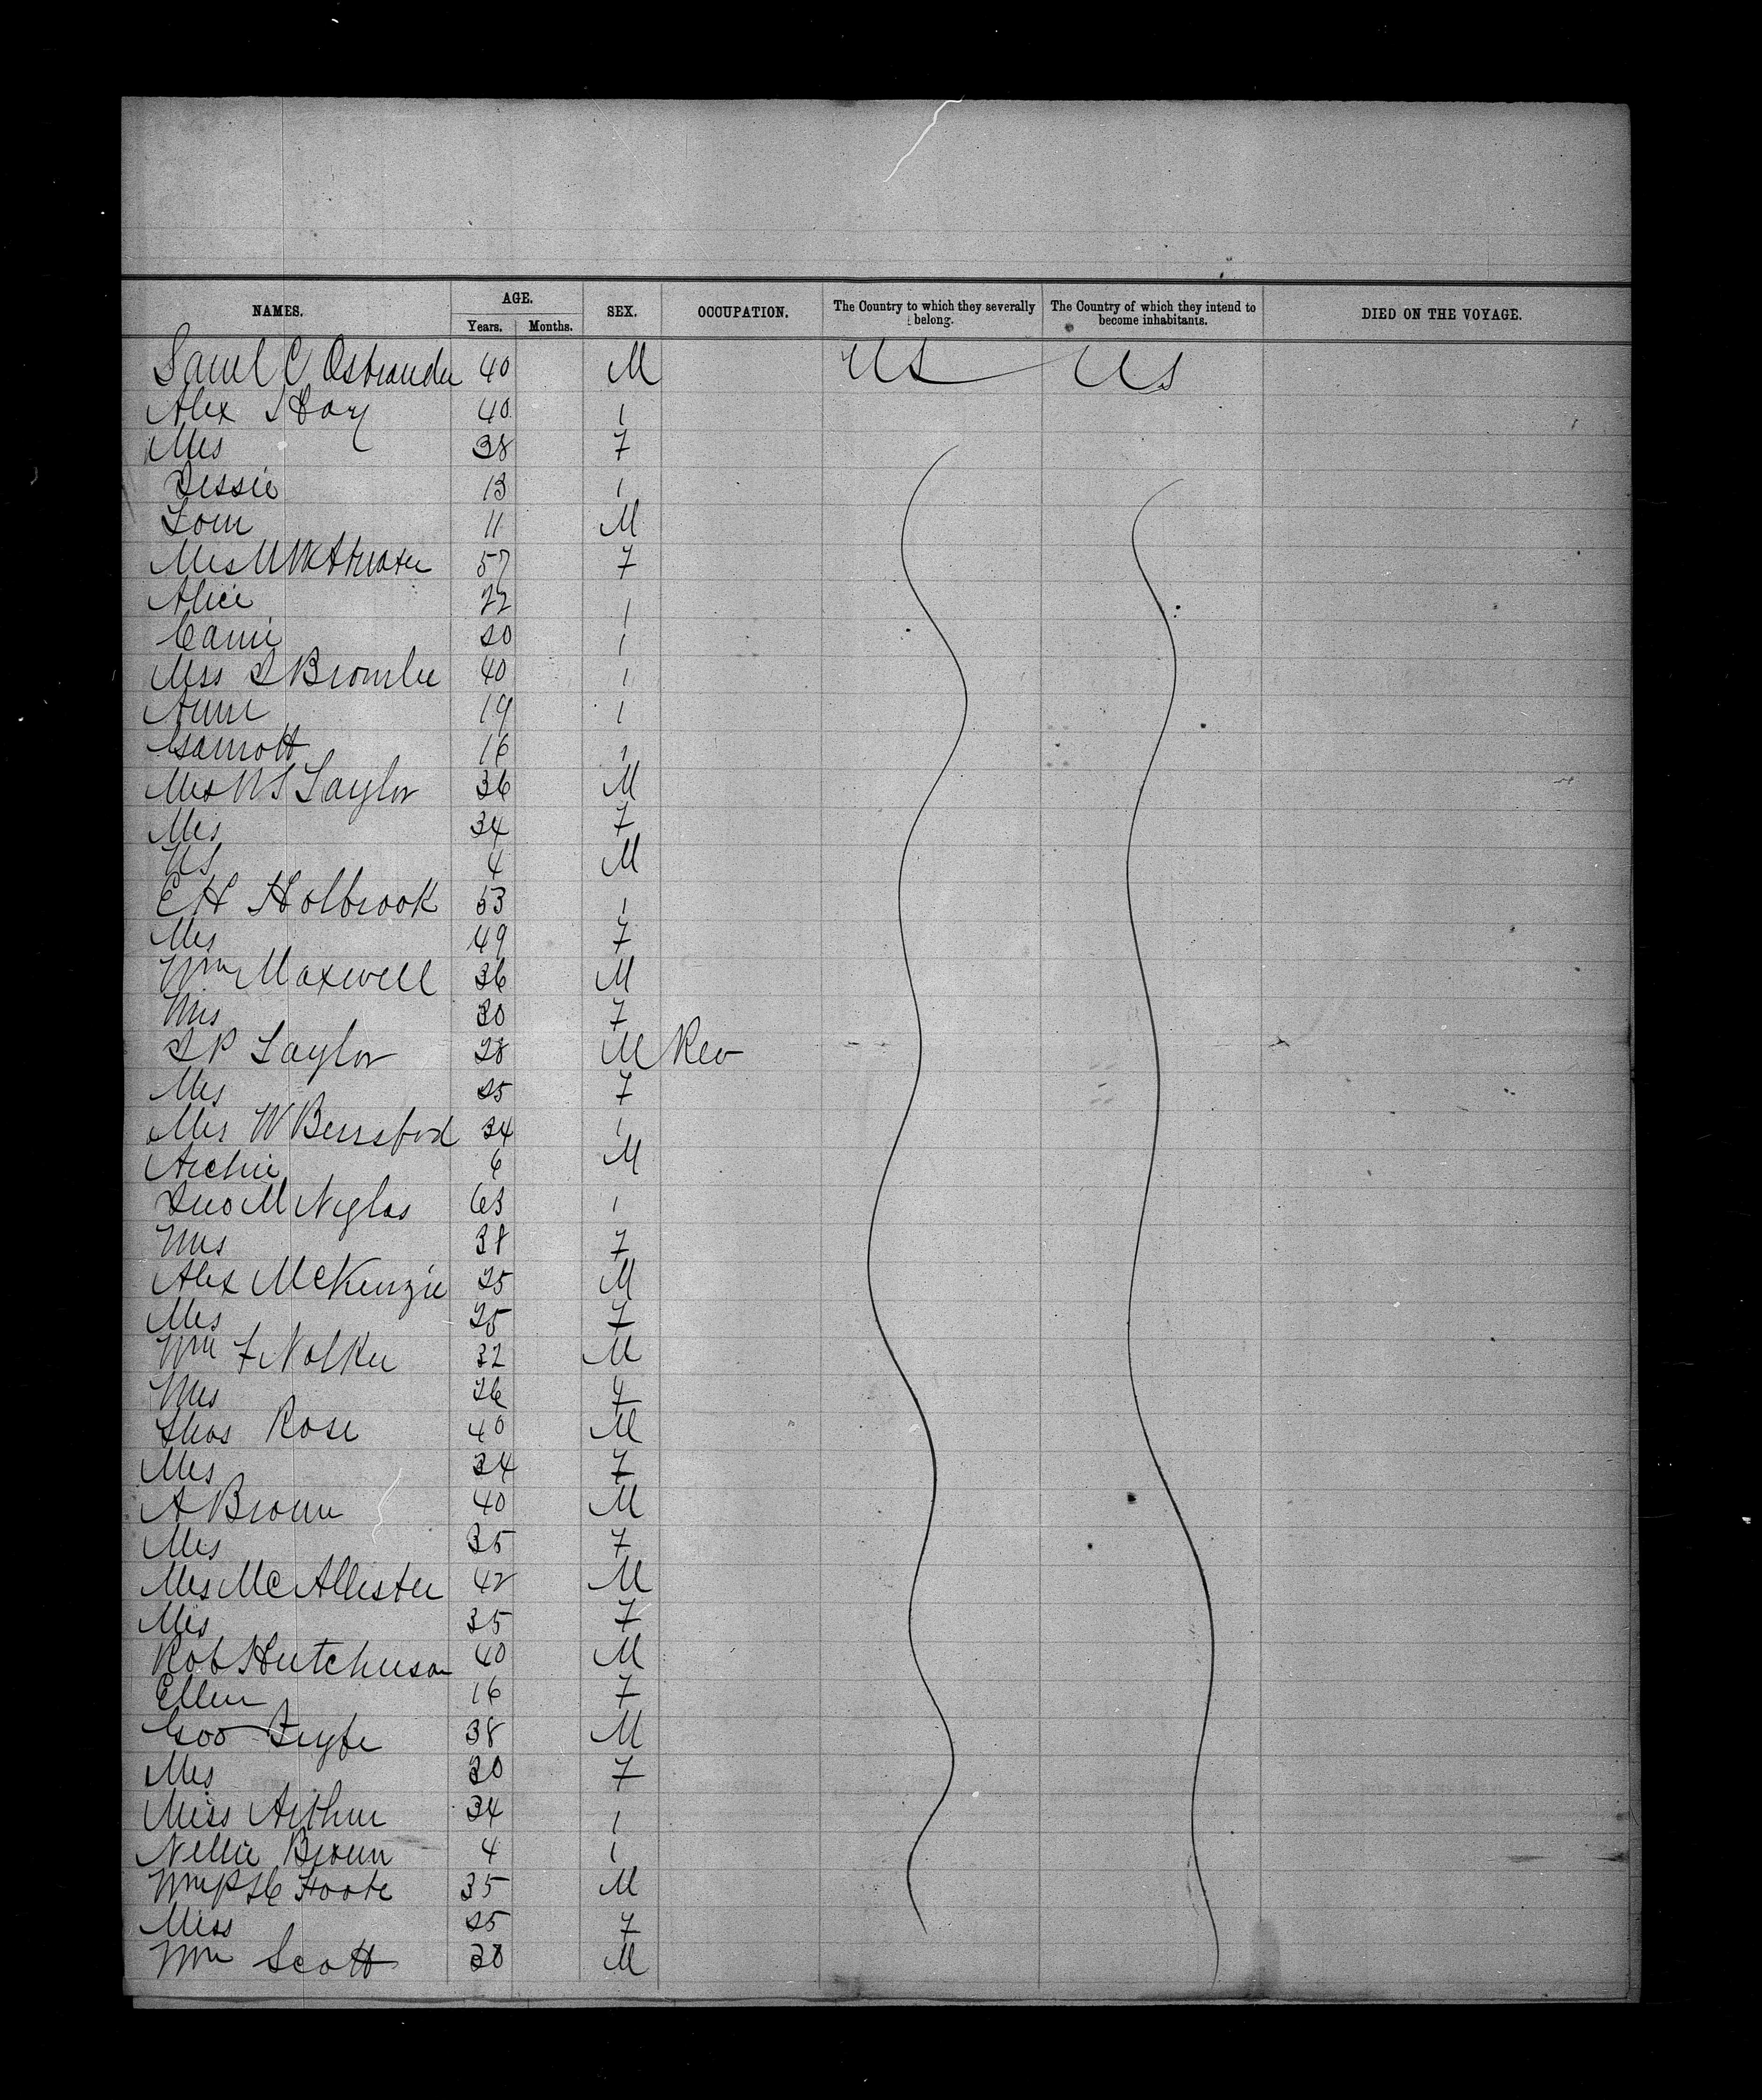 NAMES. AGE. SEX. OCCUPATION. The Country to which they severally belong. The Country of which they intend to become inhabitants. DIED ON THE VOYAGE.
Years. Months.
Saml C Ostrander 40 M US US
Alex 40 1
Mrs 38 7
Jessie 13 1
Tom 11 M
Mrs 57 7
Alice 22 1
Carrie 20 1
40 1
Annie 19 1
16 1
Mrs W S Taylor 36 M
Mrs 34 7
WS 4 M
E H Holbrook 53 1
Mrs 49 7
Wm Maxwell 36 M
Mrs 30 7
J P Taylor 28 M Rev
Mrs 25 7
Mrs W Berrsford 34 1
Archie 6 M
Jno M 63 1
Mrs 38 7
Alex McKenzie 25 M
Mrs 25 7
Wm F Nolker 32 M
Mrs 26 7
Thos Rose 40 M
Mrs 34 7
A Brown 40 M
Mrs 35 7
Mrs McAllister 42 M
Mrs 35 7
Rob Hutchison 40 M
Ellen 16 7
Geo Fyfe 38 M
Mrs 30 7
Miss Arthur 34 1
Nellie Brown 4 1
Foote 35 M
Miss 25 7
Wm Scott 38 M